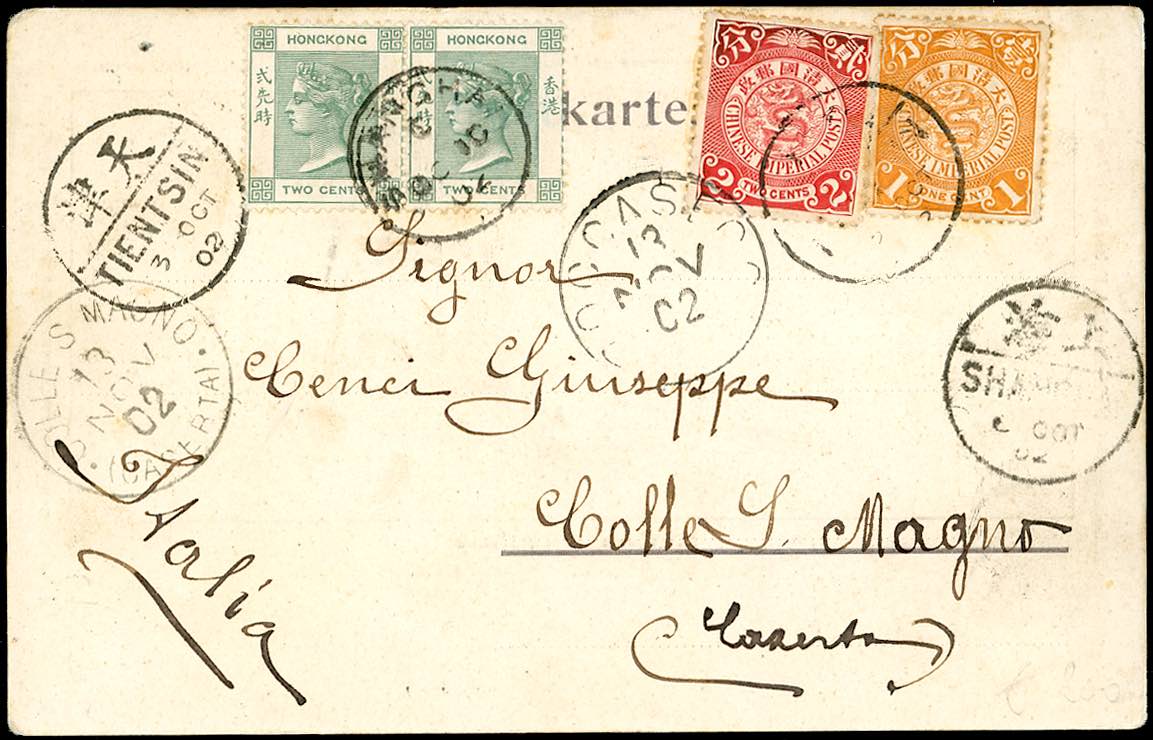 HONGKONG
弍先時
TWO CENTS
HONGKONG
香港
TWO CENTS
貳分
大清國郵政
CHINESE IMPERIAL POST
2 TWO CENTS 2
壹分
大清國郵政
CHINESE IMPERIAL POST
1 ONE CENT 1
karte.
天津
TIENTSIN
3 OCT
02
13
NOV
02
COLLE S MAGNO
13
NOV
02
(CASERTA)
OCT
02
Signor
Cenci Giuseppe
Colle S. Magno
(Caserta)
Italia